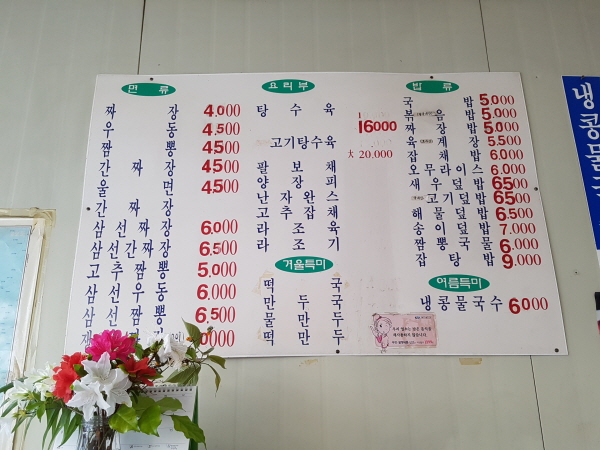 면 류
짜 장 4.000
우 동 4.500
짬 뽕 4500
간 짜 장 4.500
울 면 4500
간 짜 장
삼 선 짜 장 6.000
삼 선 간 짜 장 6.500
고 추 짬 뽕 5.000
삼 선 우 동 6.000
삼 선 짬 뽕 6.500
요 리 부
탕 수 육
16000
고기탕수육
大 20.000
팔 보 채
양 장 피
난 자 완 스
고 추 잡 채
라 조 육
라 조 기
겨울특미
떡 국
만 두 국
물 만 두
떡 만 두
밥 류
국 밥 5.000
볶 음 밥 5.000
짜 장 밥 5.000
육 계 장 5.500
잡 채 밥 6.000
오 무 라 이 스 6.000
새 우 덮 밥 6500
고 기 덮 밥 6500
해 물 덮 밥 6.500
송 이 덮 밥 7.000
짬 뽕 국 물 6.000
잡 탕 밥 9.000
여름특미
냉콩물국수 6000
냉콩물국